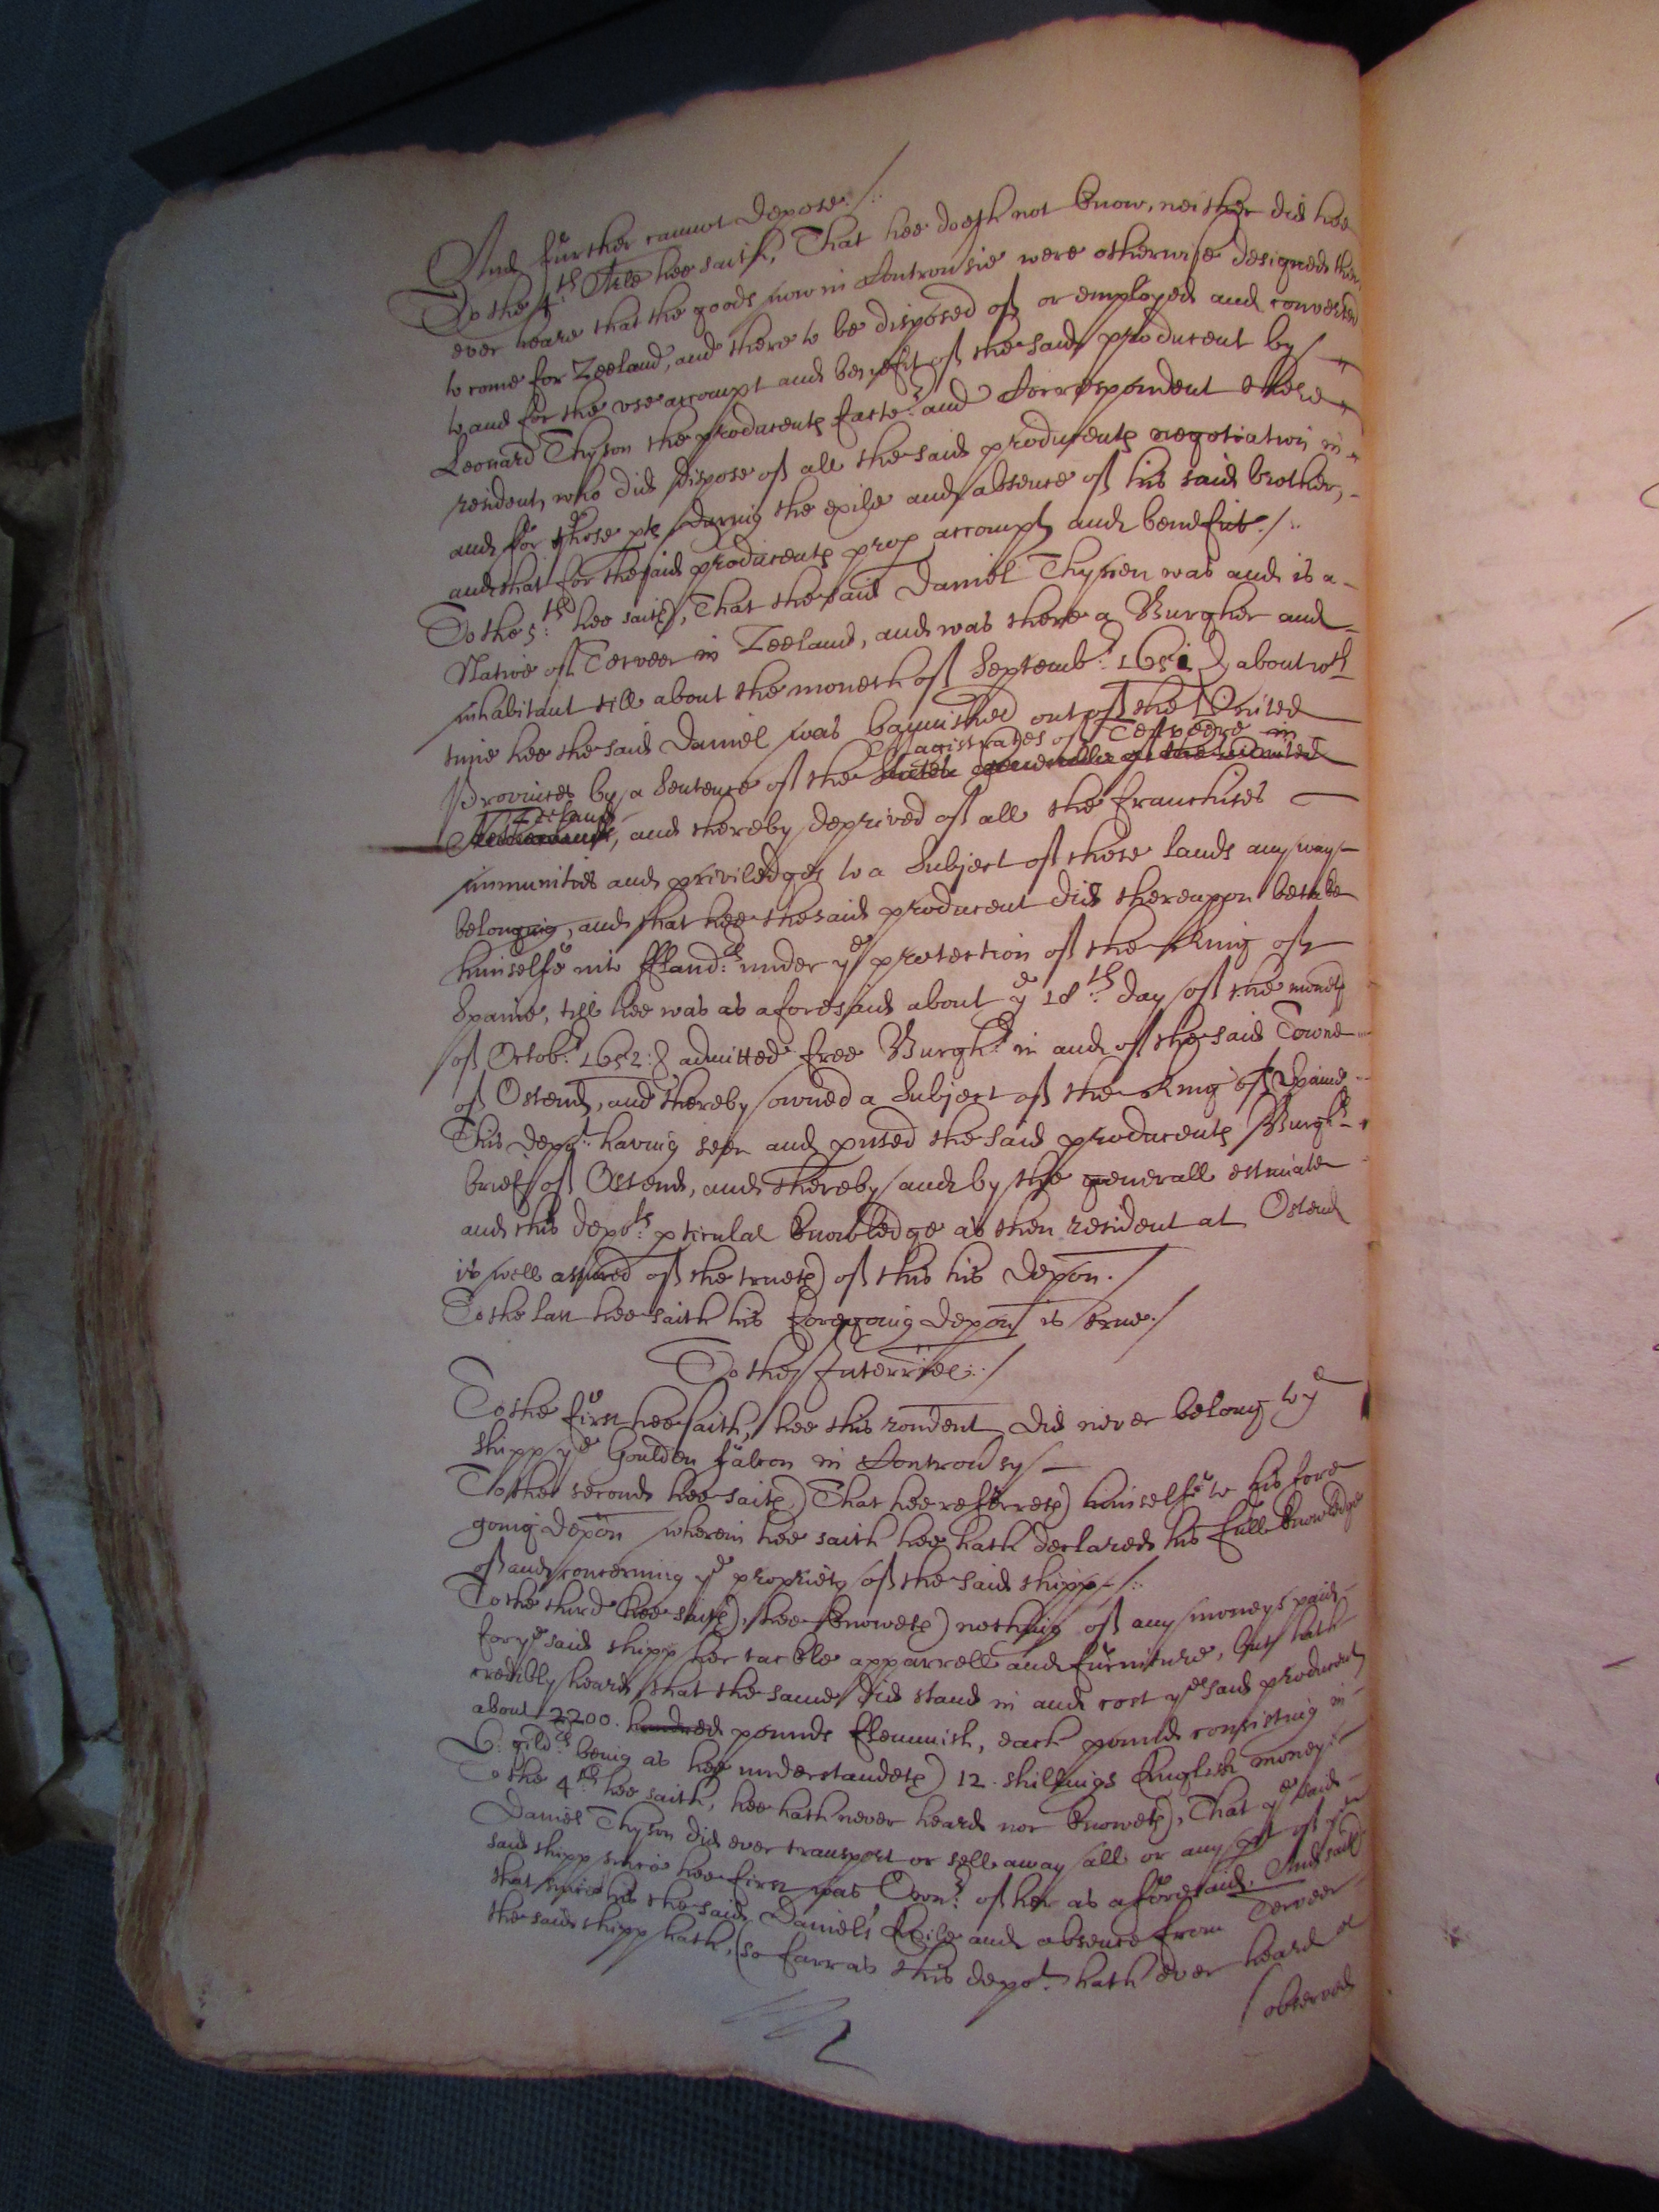 And further cannot depose./:
To the 4:th Arle hee saith, That hee doeth not know, neither did hee
ever heare that the goods now in Controusie were otherwise designed then
to come for Zeeland, and there to be disposed of or employed and converted
to and for the use accompt and benefit of the said producent by
Leonard Thyson the producents factor and Correspondent there
resident, who did dispose of all the said producents negotiation in
and for those pts during the exile and absence of his said brother,
and that for the said producents prop accompt and benefit./:
To the 5:th hee saith, That the said Daniel Thyssen was and is a
Native of Terveer in Zeeland, and was there a Burgher and
inhabitant till about the moneth of Septemb:r 1651 about wch
time hee the said Daniel was bannished out of the United
Magistrates of Terveere in
Provinces by a Sentence of the States generalls of the united
Zeeland
Netherlands, and thereby deprived of all the franchises
immunities and priviledges to a Subject of those lands any way
belonging, and that hee the said producent did thereupon betake
himselfe into ffland:rs under ye protection of the King of
Spaine, till hee was as aforesaid about ye 18:th day of the moneth
of Octob:r 1652: admitted free Burgh:r in and of the said Towne
of Ostend, and thereby owned a Subject of the King of Spaine
This depo:t having seen and pused the said producents Burgh:r
brief of Ostend, and thereby and by the generall estimate
and this depo:ts pticular knowledge as then resident at Ostend
is well assured of the trueth of this his depon./
To the last hee saith his foregoing depon is true./
To the Interries:/
To the first hee saith, hee this rondent did never belong to ye
shipp ye Goulden falcon in Controusy
To the second hee saith That hee referreth himselfe to his fore
going depon wherein hee saith hee hath declared his full knowledge
of and concerning ye propriety of the said shipp./:
To the third hee saith, hee knoweth nothing of any moneys paid
for ye said shipp her tackle apparrell and furniture, but hath
credibly heard that the same did stand in and cost ye said producent
about 2200. hundred pounds fflemmish, each pound consisting in
6: gild:rs being as hee understandeth 12. shillings English money:
To the 4:th hee saith, hee hath never heard nor knoweth, That ye said
Daniel Thyson did ever transport or sell away all or any pt of ye
said shipp since hee first was Own:r of her as aforesaid. And saith
that since his the said Daniels Exile and absence from Terveer
the said shipp hath, (so farr as this depo:t hath ever heard or
observed